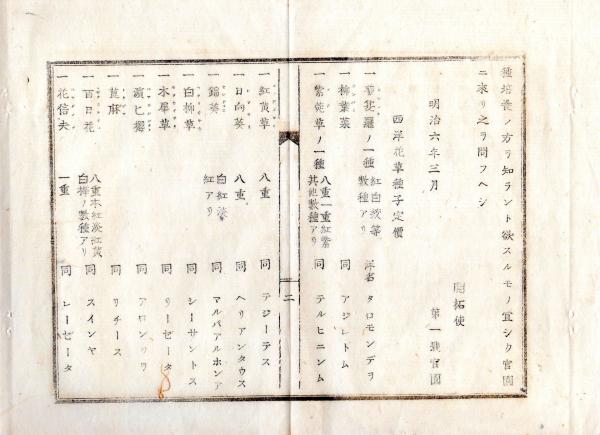 種培養ノ方ヲ知ラント欲スルモノ宜シク官園
ニ來リ之ヲ問フヘシ
明治六年三月
開拓使
第一號官園
西洋花草種子定價
一 ノ一種 紅白絞等數種アリ 洋名 タロモンデヲ
一 柳葉菜 同 アジレトム
一 紫菀草ノ一種 八重一重紅紫其他數種アリ 同 テルヒニンム
二
一 紅黄草 八重 同 テジーテス
一 日向葵 八重 同 ヘリアンタウス
一 錦葵 白紅淡紅アリ 同 マルバアルホンア
一 白柳草 同 シーサントス
一 木犀草 同 リーゼータ
一 同 アロンソワ
一 蓖麻 同 リチース
一 百日花 八重木紅淡紅黄白樺ノ數種アリ 同 スインヤ
一 花信夫 一重 同 レーゼータ